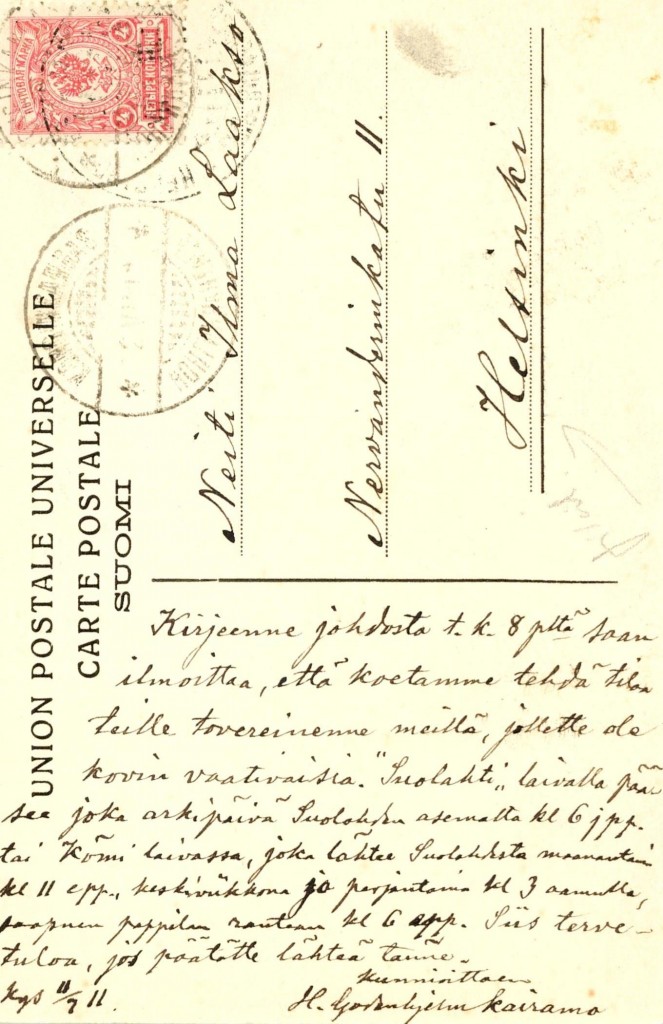 UNION POSTALE UNIVERSELLE
CARTE POSTALE
SUOMI
ПОЧТОВАЯ МАРКА
4 4
ЧЕТЫРЕ КОПѢЙКИ
Neiti Ilma Laakso
Nervanderinkatu 11.
Helsinki
Kirjeenne johdosta t. k. 8 pltä saan
ilmoittaa, että koetamme tehdä tiloa
teille tovereinenne meillä, jollette ole
kovin vaativaisia. "Suolahti" laivalla pää
see joka arkipäivä Suolahden asemalta kl 6 jpp.
tai Kömi laivassa, joka lähtee Suolahdesta maanantain
kl 11 epp., keskiviikkona ja perjantaina kl 3 aamulla,
saapuen pappilan rantaan kl 6 epp. Siis terve-
tuloa, jos päätätte lähteä tänne.
Kunnioittaen
H. Godenhjelm Kairamo
11/7 11.